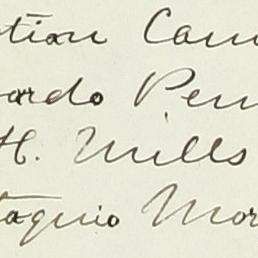 stian Cam
ardo Pen
H. Mills
taquio Mor